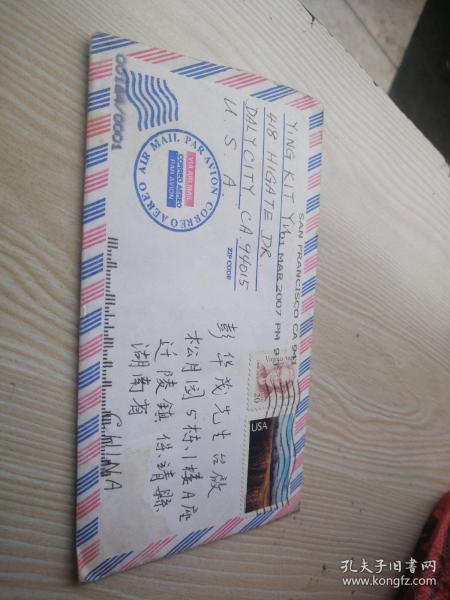 YING KIT YU
418 HIGATE DR.
DALY CITY CA. 94015
U. S. A.
ZIP CODE
SAN FRANCISCO CA 941
01 MAR 2007 PM 9
AIR MAIL PAR AVION CORREO AEREO
VIA AIR MAIL
CORREO AEREO
PAR AVION
00184/0001
20
USA
彭华茂先生台啟
松月园5栋小楼A座
迁陵鎮 保靖縣
湖南省
CHINA
孔夫子旧书网
www.kongfz.com